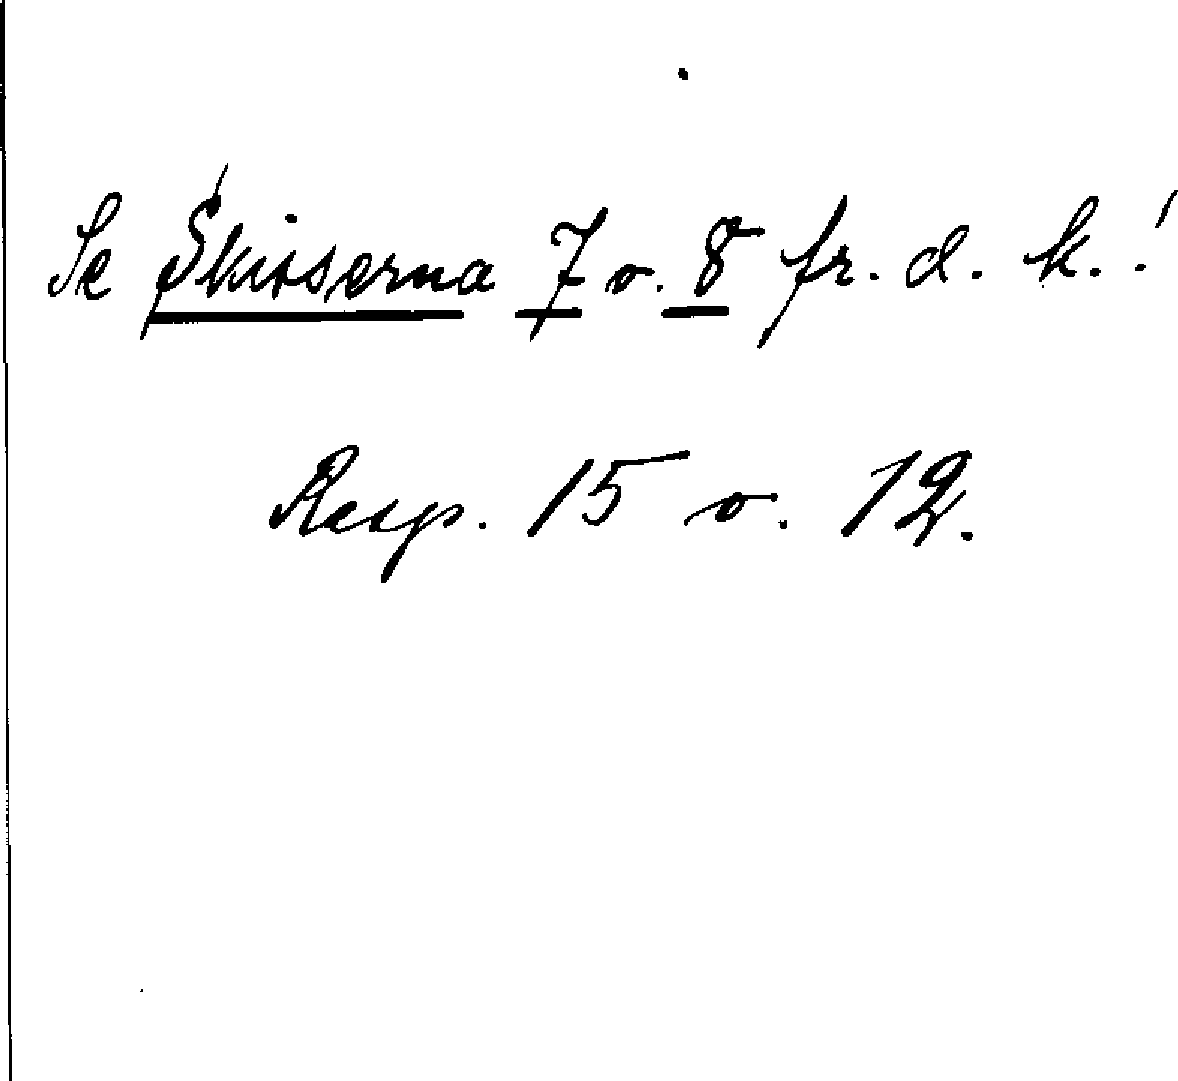 Se Skisserna 7 o. 8 fr. d. k.!
Resp. 15 o. 12.